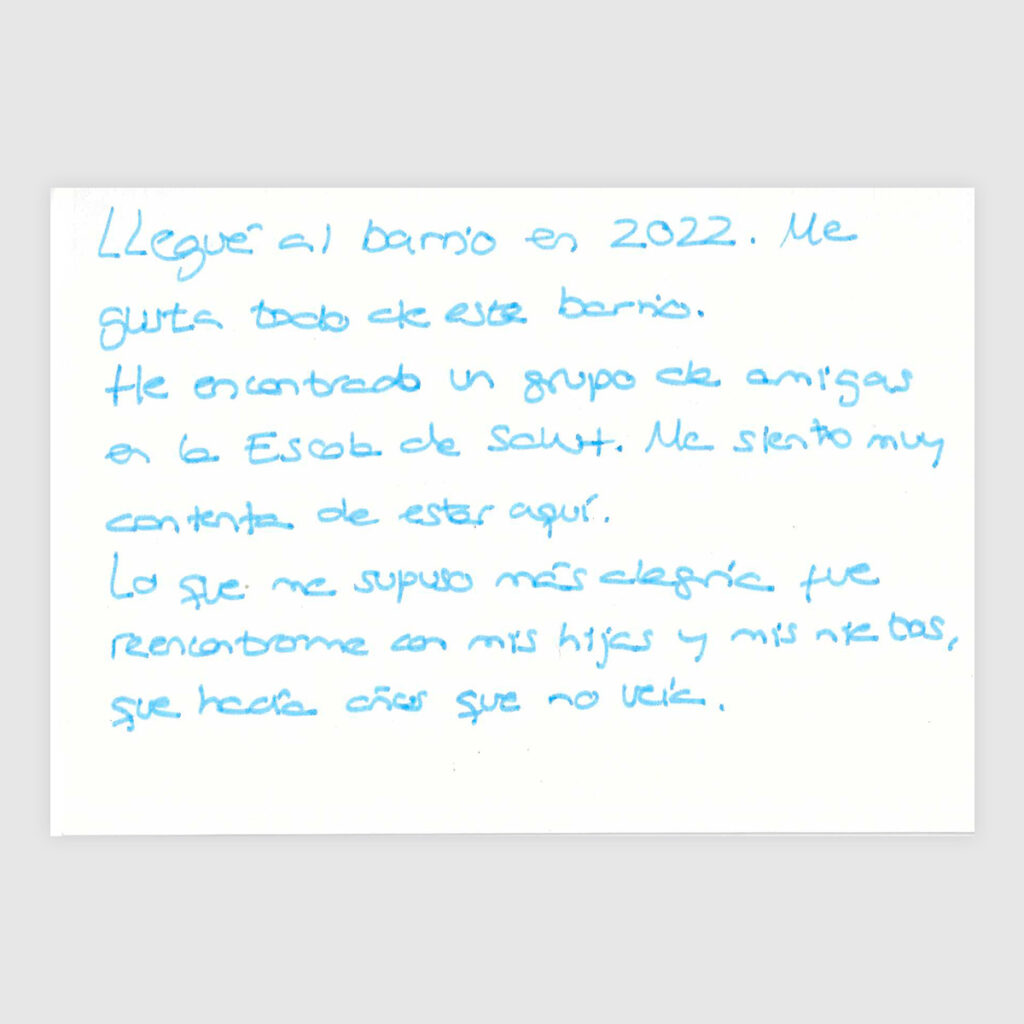 Llegué al barrio en 2022. Me
gusta todo de este barrio.
He encontrado un grupo de amigas
en la Escola de Salut. Me siento muy
contenta de estar aquí.
Lo que me supuso más alegría fue
reencontrarme con mis hijas y mis nietos,
que hacía años que no veía.